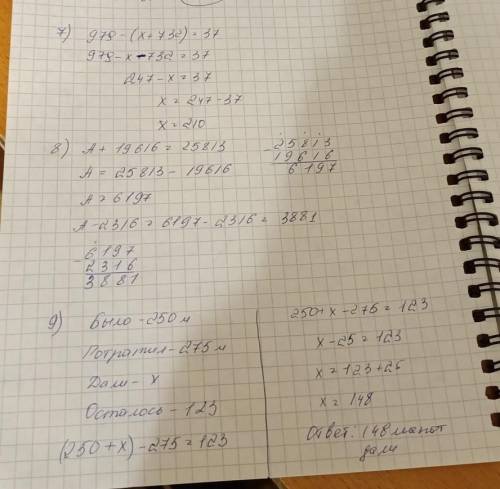 7) 979-(x+732)=37
979-x-732=37
247-x=37
x=247-37
x=210
8) A+19616=25813
A=25813-19616
A=6197
A-2316=6197-2316=3881
-25813
19616
6197
-6197
2316
3881
9) Было-250м
Потратил-275м
Дали-x
Осталось-123
(250+x)-275=123
250+x-275=123
x-25=123
x=123+25
x=148
Ответ: 148 манат
дали